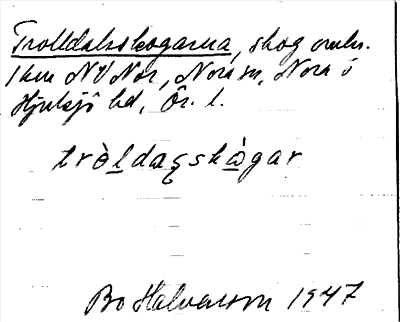 Trolldalsskogarna, skog omkr.
1 km NV Nor, Nora sn, Nora o
Hjulsjö bd, Ör. l.
tròl̲daꞔskò̲gar
Bo Halvarson 1947